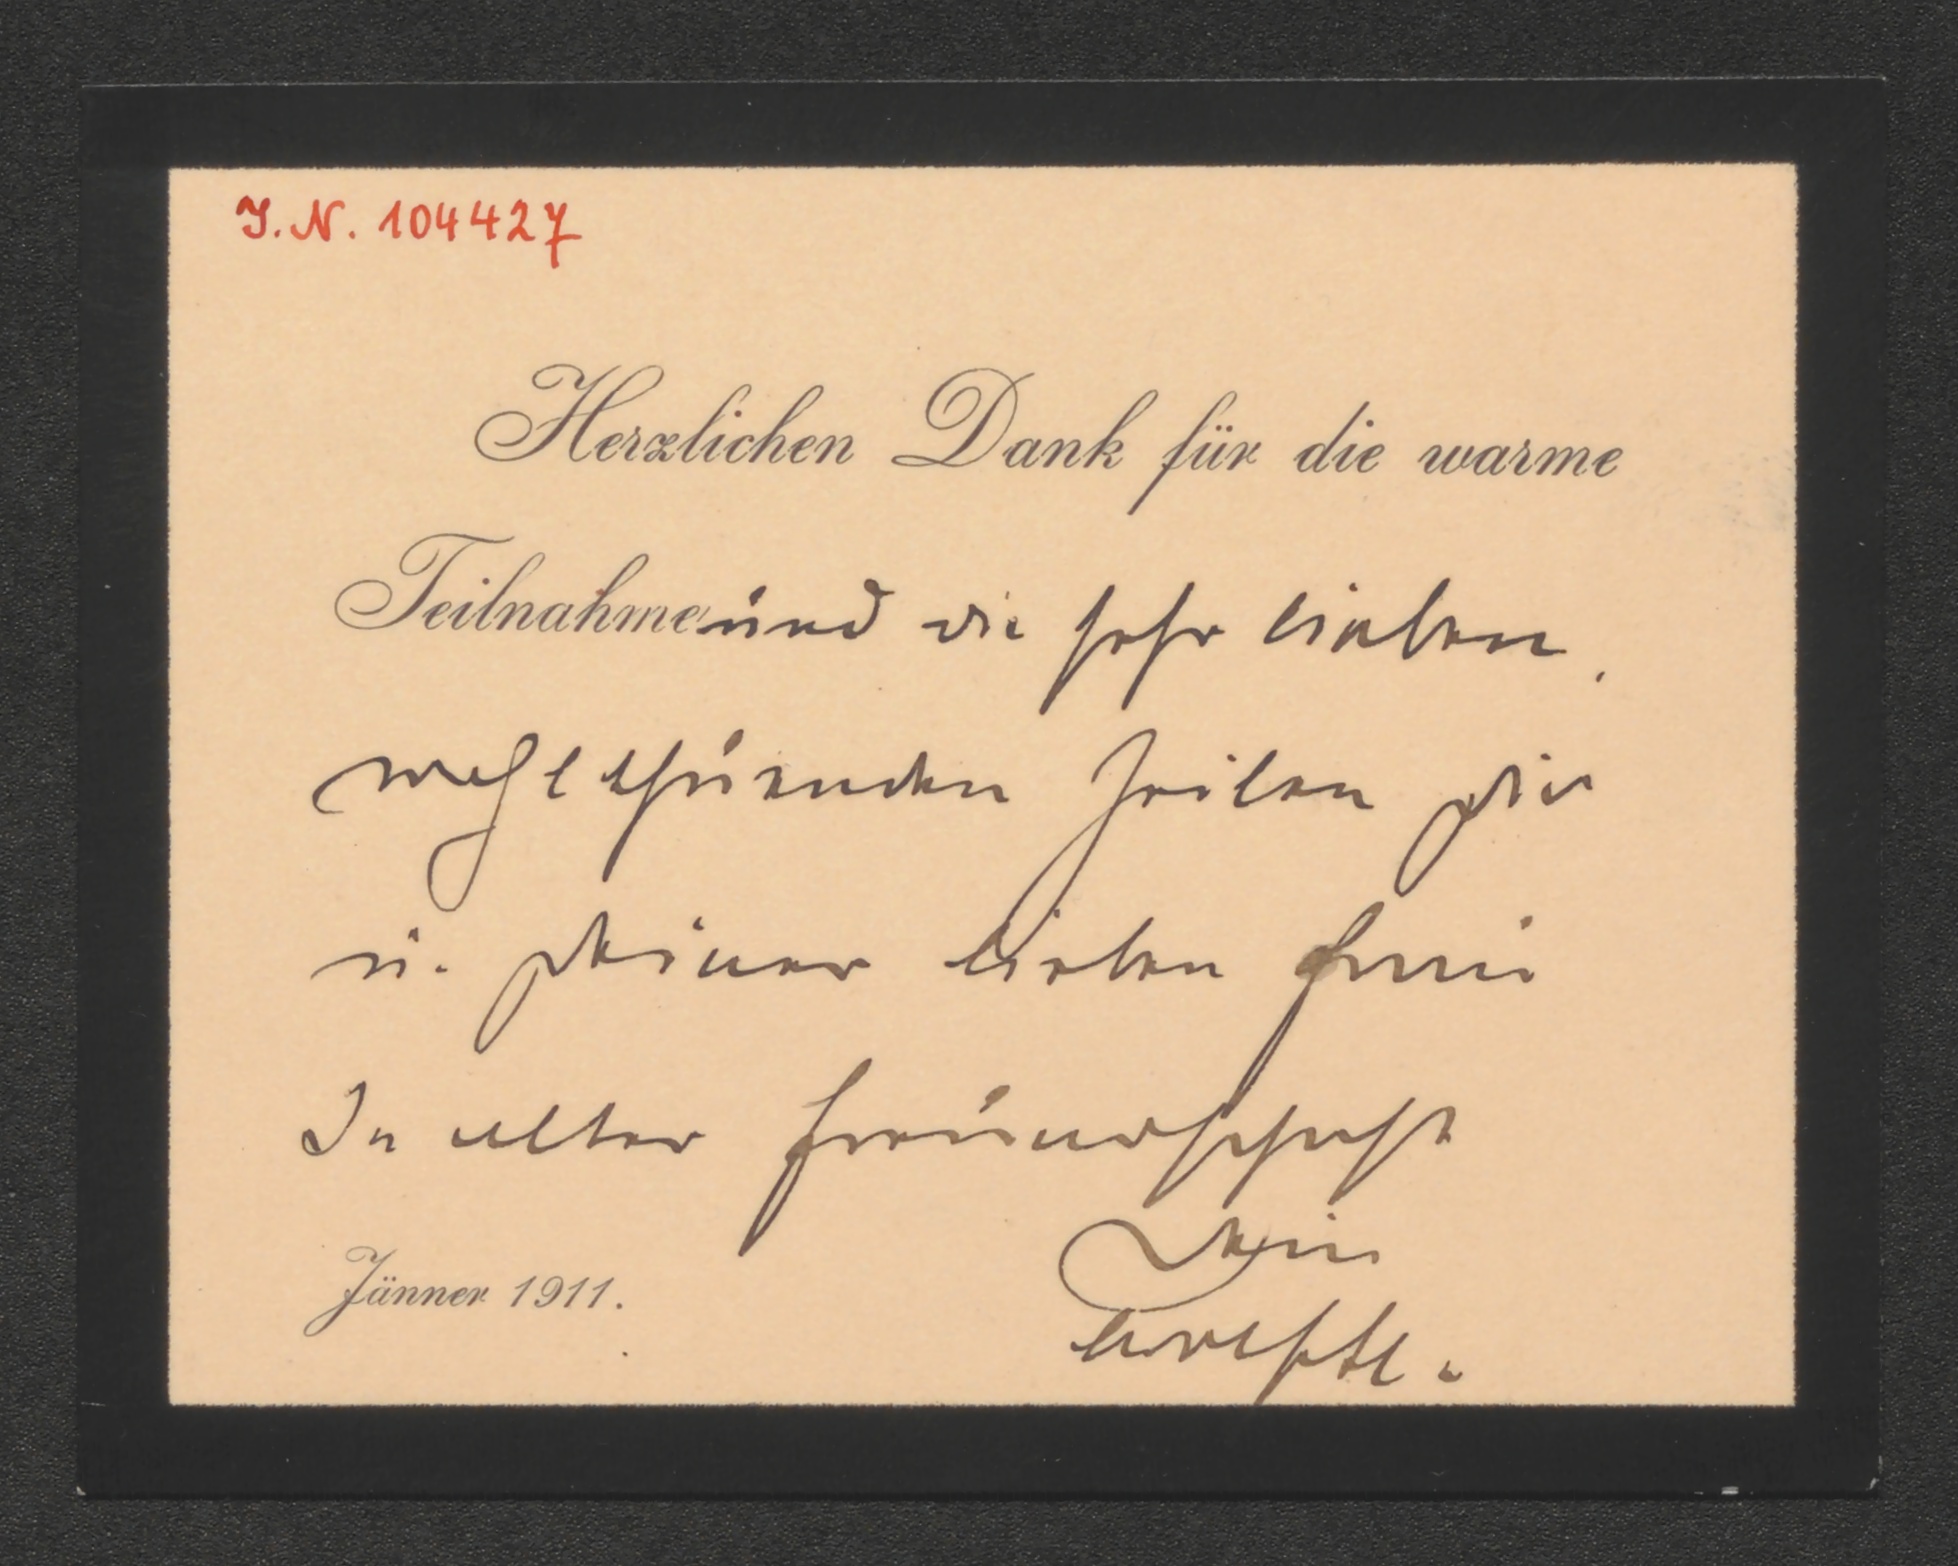 J.N. 104427
Herzlichen Dank für die warme
Teilnahme und die sehr lieben,
wohlthuenden Zeilen Dir
u. Deiner lieben Frau
In alter Freundschaft
Dein
Jänner 1911.